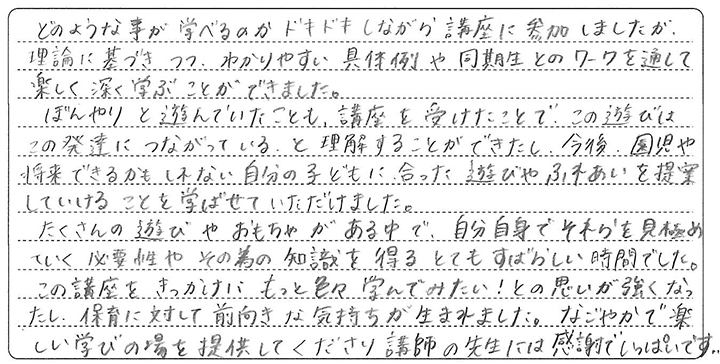 どのような事が学べるのかドキドキしながら講座に参加しましたが、
理論に基づきつつ、わかりやすい具体例や同期生とのワークを通して
楽しく深く学ぶことができました。
ぼんやりと遊んでいたことも、講座を受けたことで、この遊びは
この発達につながっている、と理解することができたし、今後、園児や
将来できるかもしれない自分の子どもに合った遊びやふれあいを提案
していけることを学ばせていただけました。
たくさんの遊びやおもちゃがある中で、自分自身でそれらを見極め
ていく必要性やその為の知識を得るとてもすばらしい時間でした。
この講座をきっかけにもっと色々学んでみたい！との思いが強くなっ
たし、保育に対して前向きな気持ちが生まれました。なごやかで楽
しい学びの場を提供してくださり講師の先生には感謝でいっぱいです。